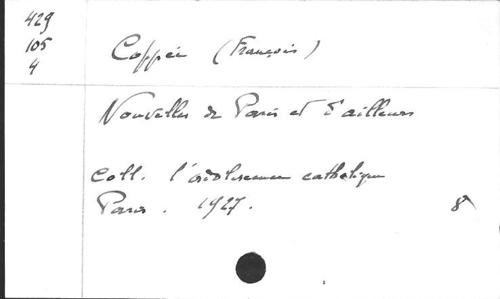 429
105
4
Coppée (François)
Nouvelles de Paris et d'ailleurs
Coll. l'adolescence catholique
Paris. 1927. 8°